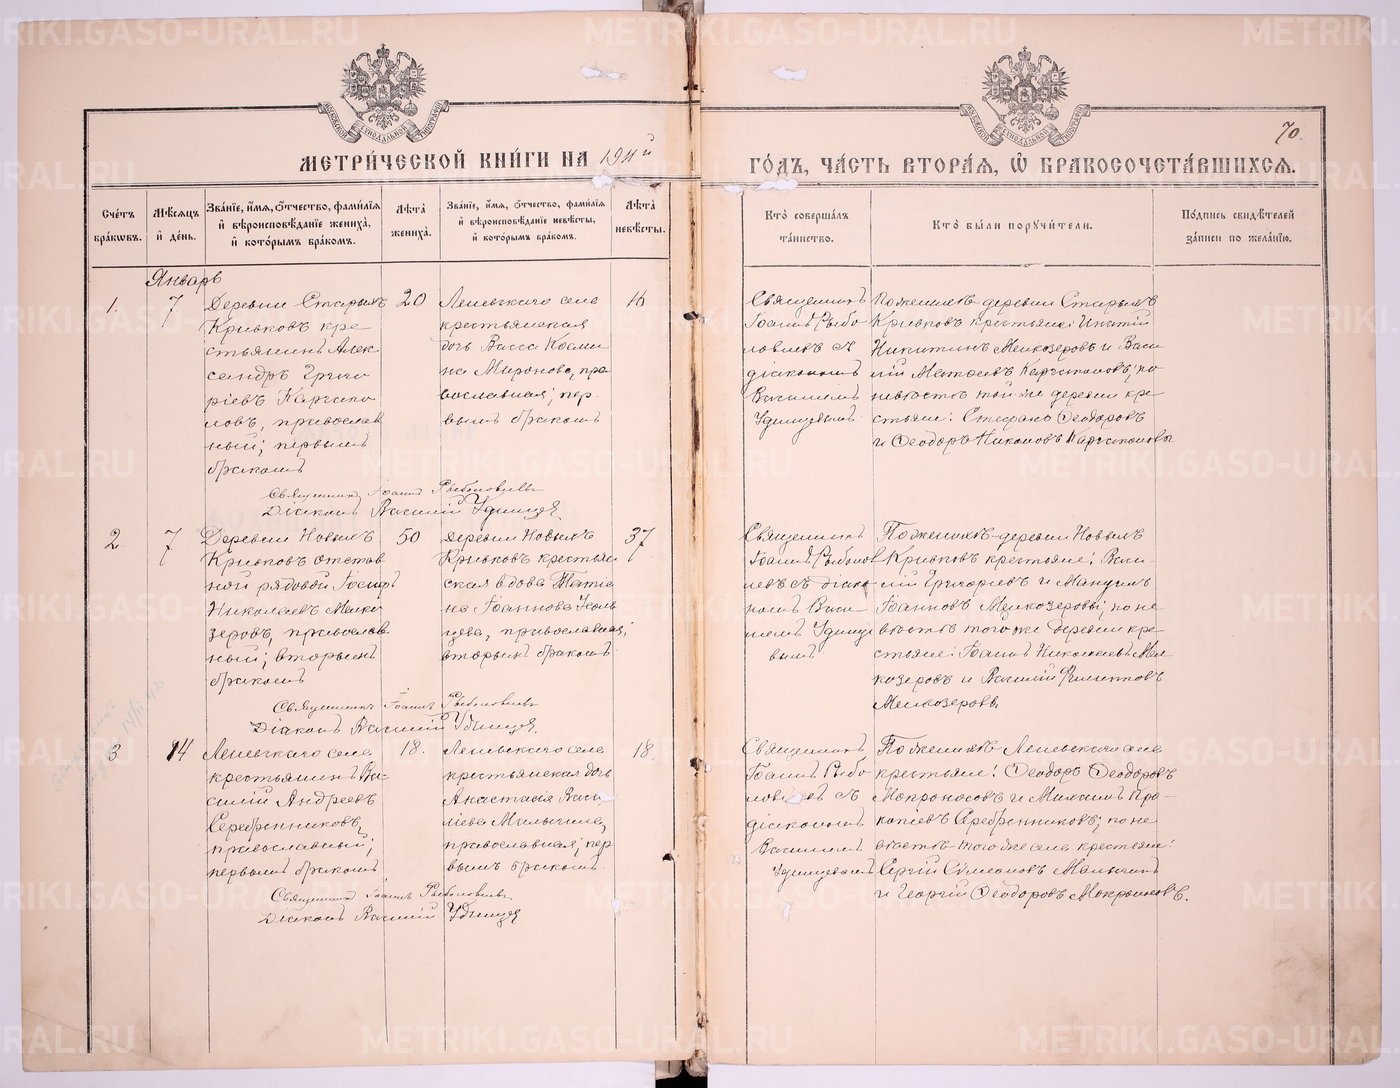 МЕТРИ́ЧЕСКОЙ КНИ́ГИ НА 1911й
ГО́ДЪ, ЧА́СТЬ ВТОРА́Я, Ѡ҆ БРАКОСОЧЕТА́ВШИХСЯ.
70.
Сче́тъ бра́кѡвъ.
Мѣ́сяцъ и҆ де́нь.
Зва́нїе, и҆́мя, ѻ҆́тчество, фами́лїя и҆ вѣроисповѣ́данїе жениха̀, и҆ кото́рымъ бра́комъ.
Лѣ́та жениха̀.
Зва́нїе, и҆́мя, ѻ҆́тчество, фами́лїя и҆ вѣроисповѣ́данїе невѣ́сты, и҆ кото́рымъ бра́комъ.
Лѣ́та невѣ́сты.
Кто̀ соверша́лъ та́инство.
Кто̀ бы́ли поручи́тели.
По́дпись свидѣ́телей за́писи по жела́нїю.
Январь
1.
7
Деревни Старыхъ
Кривковъ кре-
стьянинъ Алек-
сандръ Григо-
рiевъ Карчапо-
ловъ, православ
ный; первымъ
бракомъ
20
Леневскаго села
крестьянская
дочь Васса Косми-
на Миронова, пра
вославная; пер-
вымъ бракомъ
16
Священникъ
Іоаннъ Рыбо-
ловлевъ съ
дiакономъ
Василiемъ
Удинцевымъ
По женихѣ деревни Старыхъ
Кривковъ крестьяне: Игнатiй
Никитинъ Мелкозеровъ и Васи
лiй Матѳеевъ; по
невѣстѣ той же деревни кре-
стьяне: Стефанъ Ѳеодоровъ
и Ѳеодоръ Никоновъ
Священникъ Іоаннъ Рыболовлевъ
Дiаконъ Василiй Удинцевъ
2
7
Деревни Новыхъ
Кривковъ отстав
ной рядовой Іосифъ
Николаевъ Мелко
зеровъ, православ
ный; вторымъ
бракомъ
50
деревни Новыхъ
Кривковъ крестьян
ская вдова Татiа
на Іоаннова
православная;
вторымъ бракомъ
37
Священникъ
Іоаннъ Рыболов
левъ съ дiако-
номъ Васи-
лiемъ Удинце
вымъ
По женихѣ деревни Новыхъ
Кривковъ крестьяне: Васи-
лiй Григорьевъ и Мануилъ
Іоанновъ Мелкозеровы; по не
вѣстѣ того же деревни кре-
стьяне: Іоаннъ Николаевъ Мел
козеровъ и Василiй Филипповъ
Мелкозеровъ
Священникъ Іоаннъ Рыболовлевъ
Дiаконъ Василiй Удинцевъ.
3
14
Леневскаго села
крестьянинъ Ва-
силiй Андреевъ
Серебренниковъ,
православный;
первымъ бракомъ
18.
Леневскаго села
крестьянская дочь
Анастасiя Васи
лiева Малыгина,
православная; пер
вымъ бракомъ
18.
Священникъ
Іоаннъ Рыбо
ловлевъ съ
дiакономъ
Василiемъ
Удинцевымъ
По женихѣ Леневскаго села
крестьяне: Ѳеодоръ Ѳеодоровъ
Мокроносовъ и Михаилъ Про-
копiевъ Серебренниковъ; по не
вѣстѣ того же села крестьяне:
Сергiй Симеоновъ Малыгинъ
и Георгiй Ѳеодоровъ Мокроносовъ.
Священникъ Іоаннъ Рыболовлевъ
Дiаконъ Василiй Удинцевъ
METRIKI.GASO-URAL.RU